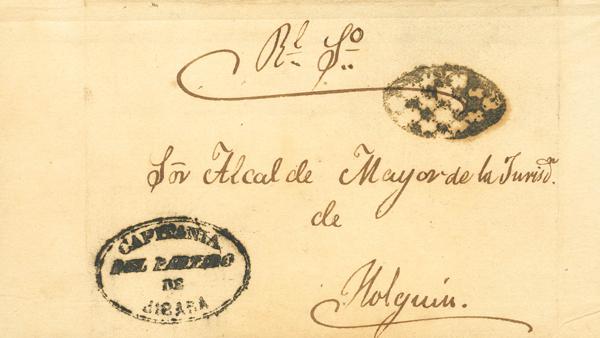 Rl. So..
Sōr Alcalde Mayor de la Jurisdn.
de
Holguin.
CAPITANIA
DEL PARTIDO
DE
JIBARA